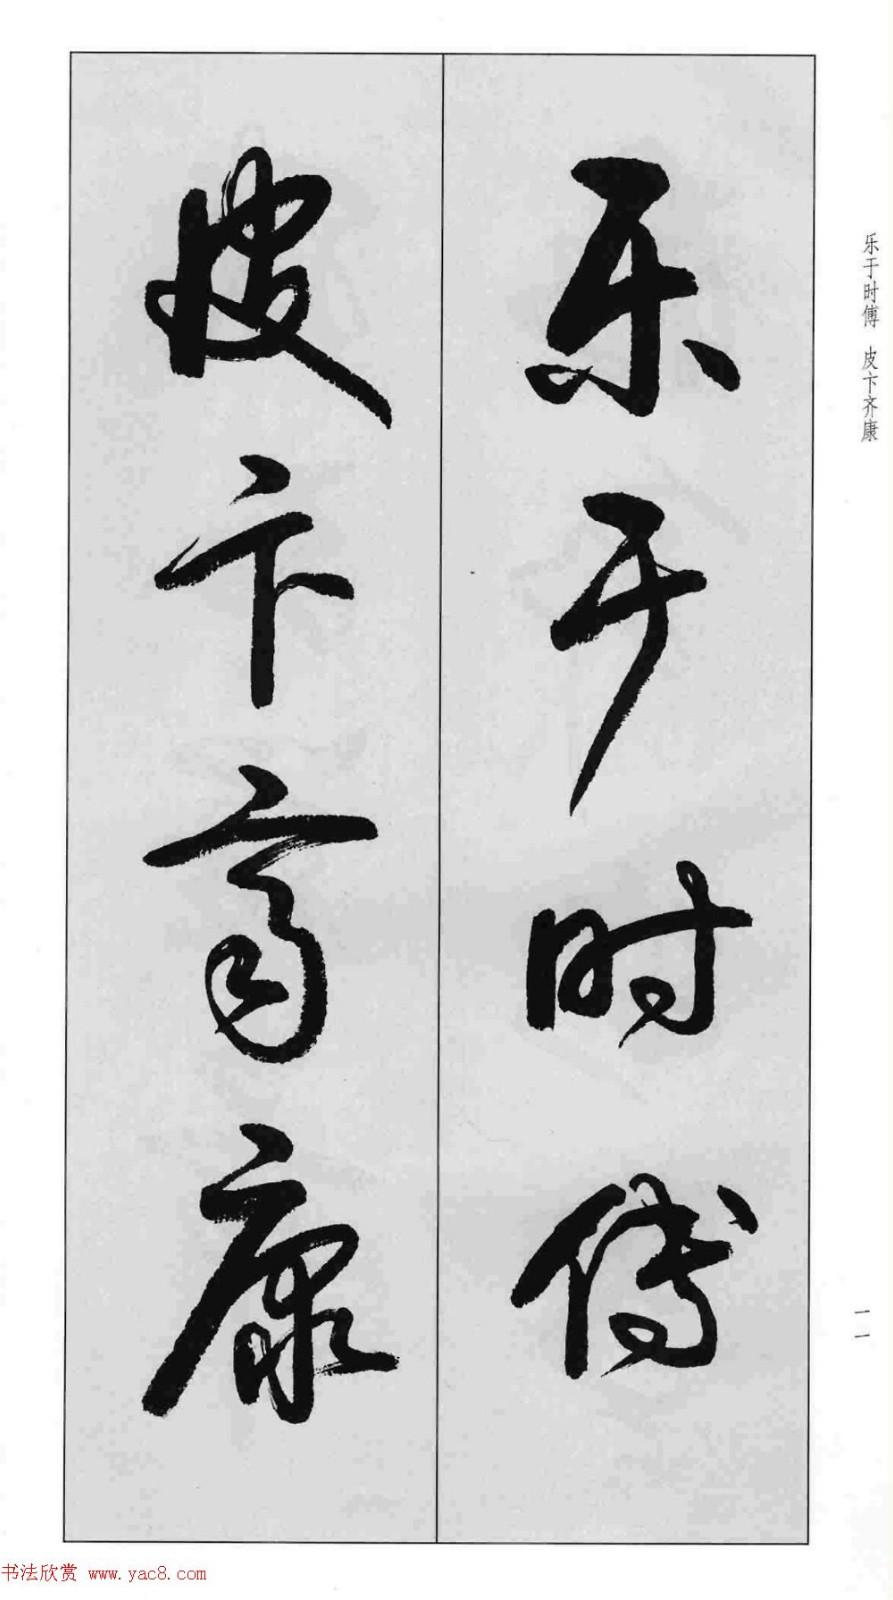 乐于时傅
皮卞齐康
乐于时傅 皮卞齐康
一一
书法欣赏 www.yac8.com